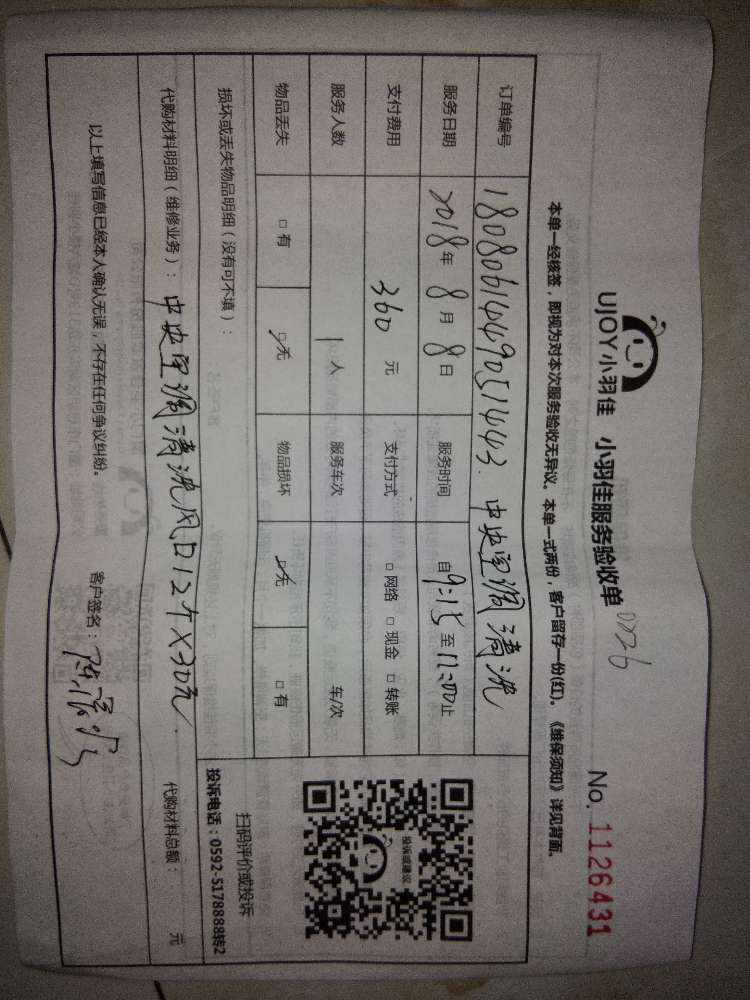 UJOY小羽佳 小羽佳服务验收单 0226 No. 1126431
本单一经核签，即视为对本次服务验收无异议。本单一式两份，客户留存一份(红)。《维保须知》详见背面。
订单编号 180806144905 1443. 中央空调清洗
服务日期 2018年 8月 8日 服务时间 自9:15至12:00止
支付费用 360 元 支付方式 □ 网络 □ 现金 □ 转账
服务人数 1 人 服务车次 车/次
物品丢失 □ 有 □ 无 物品损坏 □ 无 □ 有
损坏或丢失物品明细（没有可不填）：
投诉或建议
扫码评价或投诉
投诉电话：0592-5178888转2
代购材料明细（维修业务）：中央空调清洗风口12个×30元. 代购材料总额： 元
以上填写信息已经本人确认无误，不存在任何争议纠纷。 客户签名：